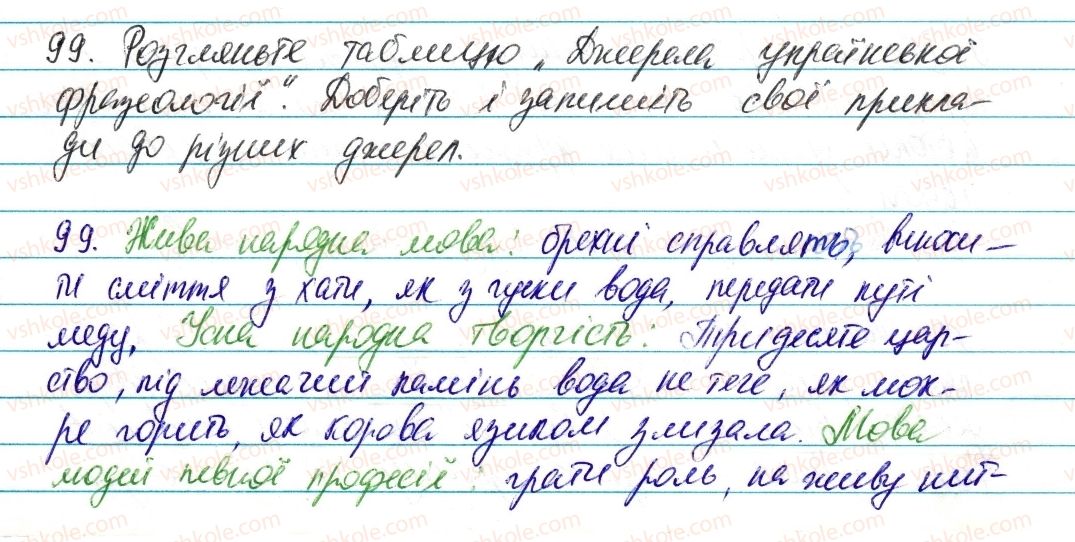 99. Розгляньте таблицю „Джерела української
фразеології". Доберіть і запишіть свої прикла-
ди до різних джерел.
99. Жива народна мова: брехні справлять, виноси-
ти сміття з хати, як з гуски вода, передати куті
меду. Усна народна творчість: Тридесяте цар-
ство, під лежачий камінь вода не тече, як мок-
ре горить, як корова язиком злизала. Мова
людей певної професії: грати роль, на живу нит-